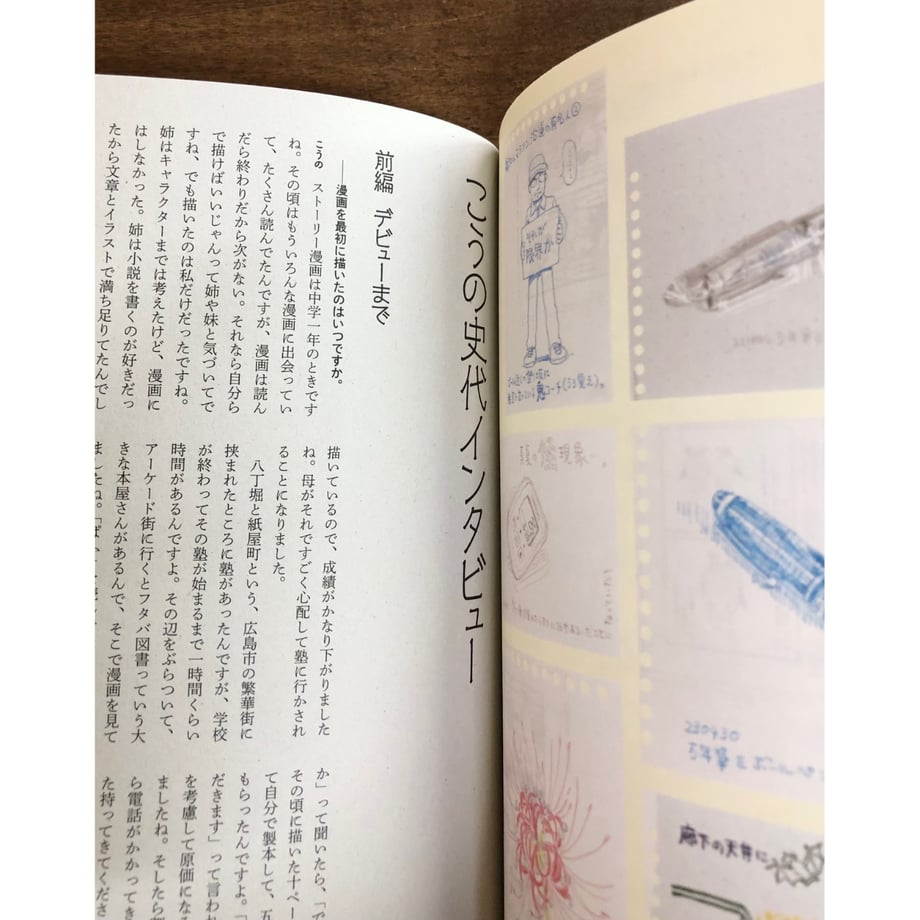 こうの史代インタビュー
前編 デビューまで
――漫画を最初に描いたのはいつですか。
こうの ストーリー漫画は中学一年のときです
ね。その頃はもういろんな漫画に出会ってい
て、たくさん読んでたんですが、漫画は読ん
だら終わりだから次がない。それなら自分ら
で描けばいいじゃんって姉や妹と気づいてで
すね、でも描いたのは私だけだったですね。
姉はキャラクターまでは考えたけど、漫画に
はしなかった。姉は小説を書くのが好きだっ
たから文章とイラストで満ち足りてたんでし
描いているので、成績がかなり下がりました
ね。母がそれですごく心配して塾に行かされ
ることになりました。
八丁堀と紙屋町という、広島市の繁華街に
挟まれたところに塾があったんですが、学校
が終わってその塾が始まるまで一時間くらい
時間があるんですよ。その辺をぶらついて、
アーケード街に行くとフタバ図書っていう大
きな本屋さんがあるんで、そこで漫画を見て
ましたね。
か」って聞いたら、「で
その頃に描いた十ペー
て自分で製本して、五
もらったんですよ。「
だきます」って言われ
を考慮して原価になる
ましたね。そしたら
ら電話がかかってき
た持ってきてくださ
限界か
真夏の怪現象…。
230430
万年筆
廊下の天井に